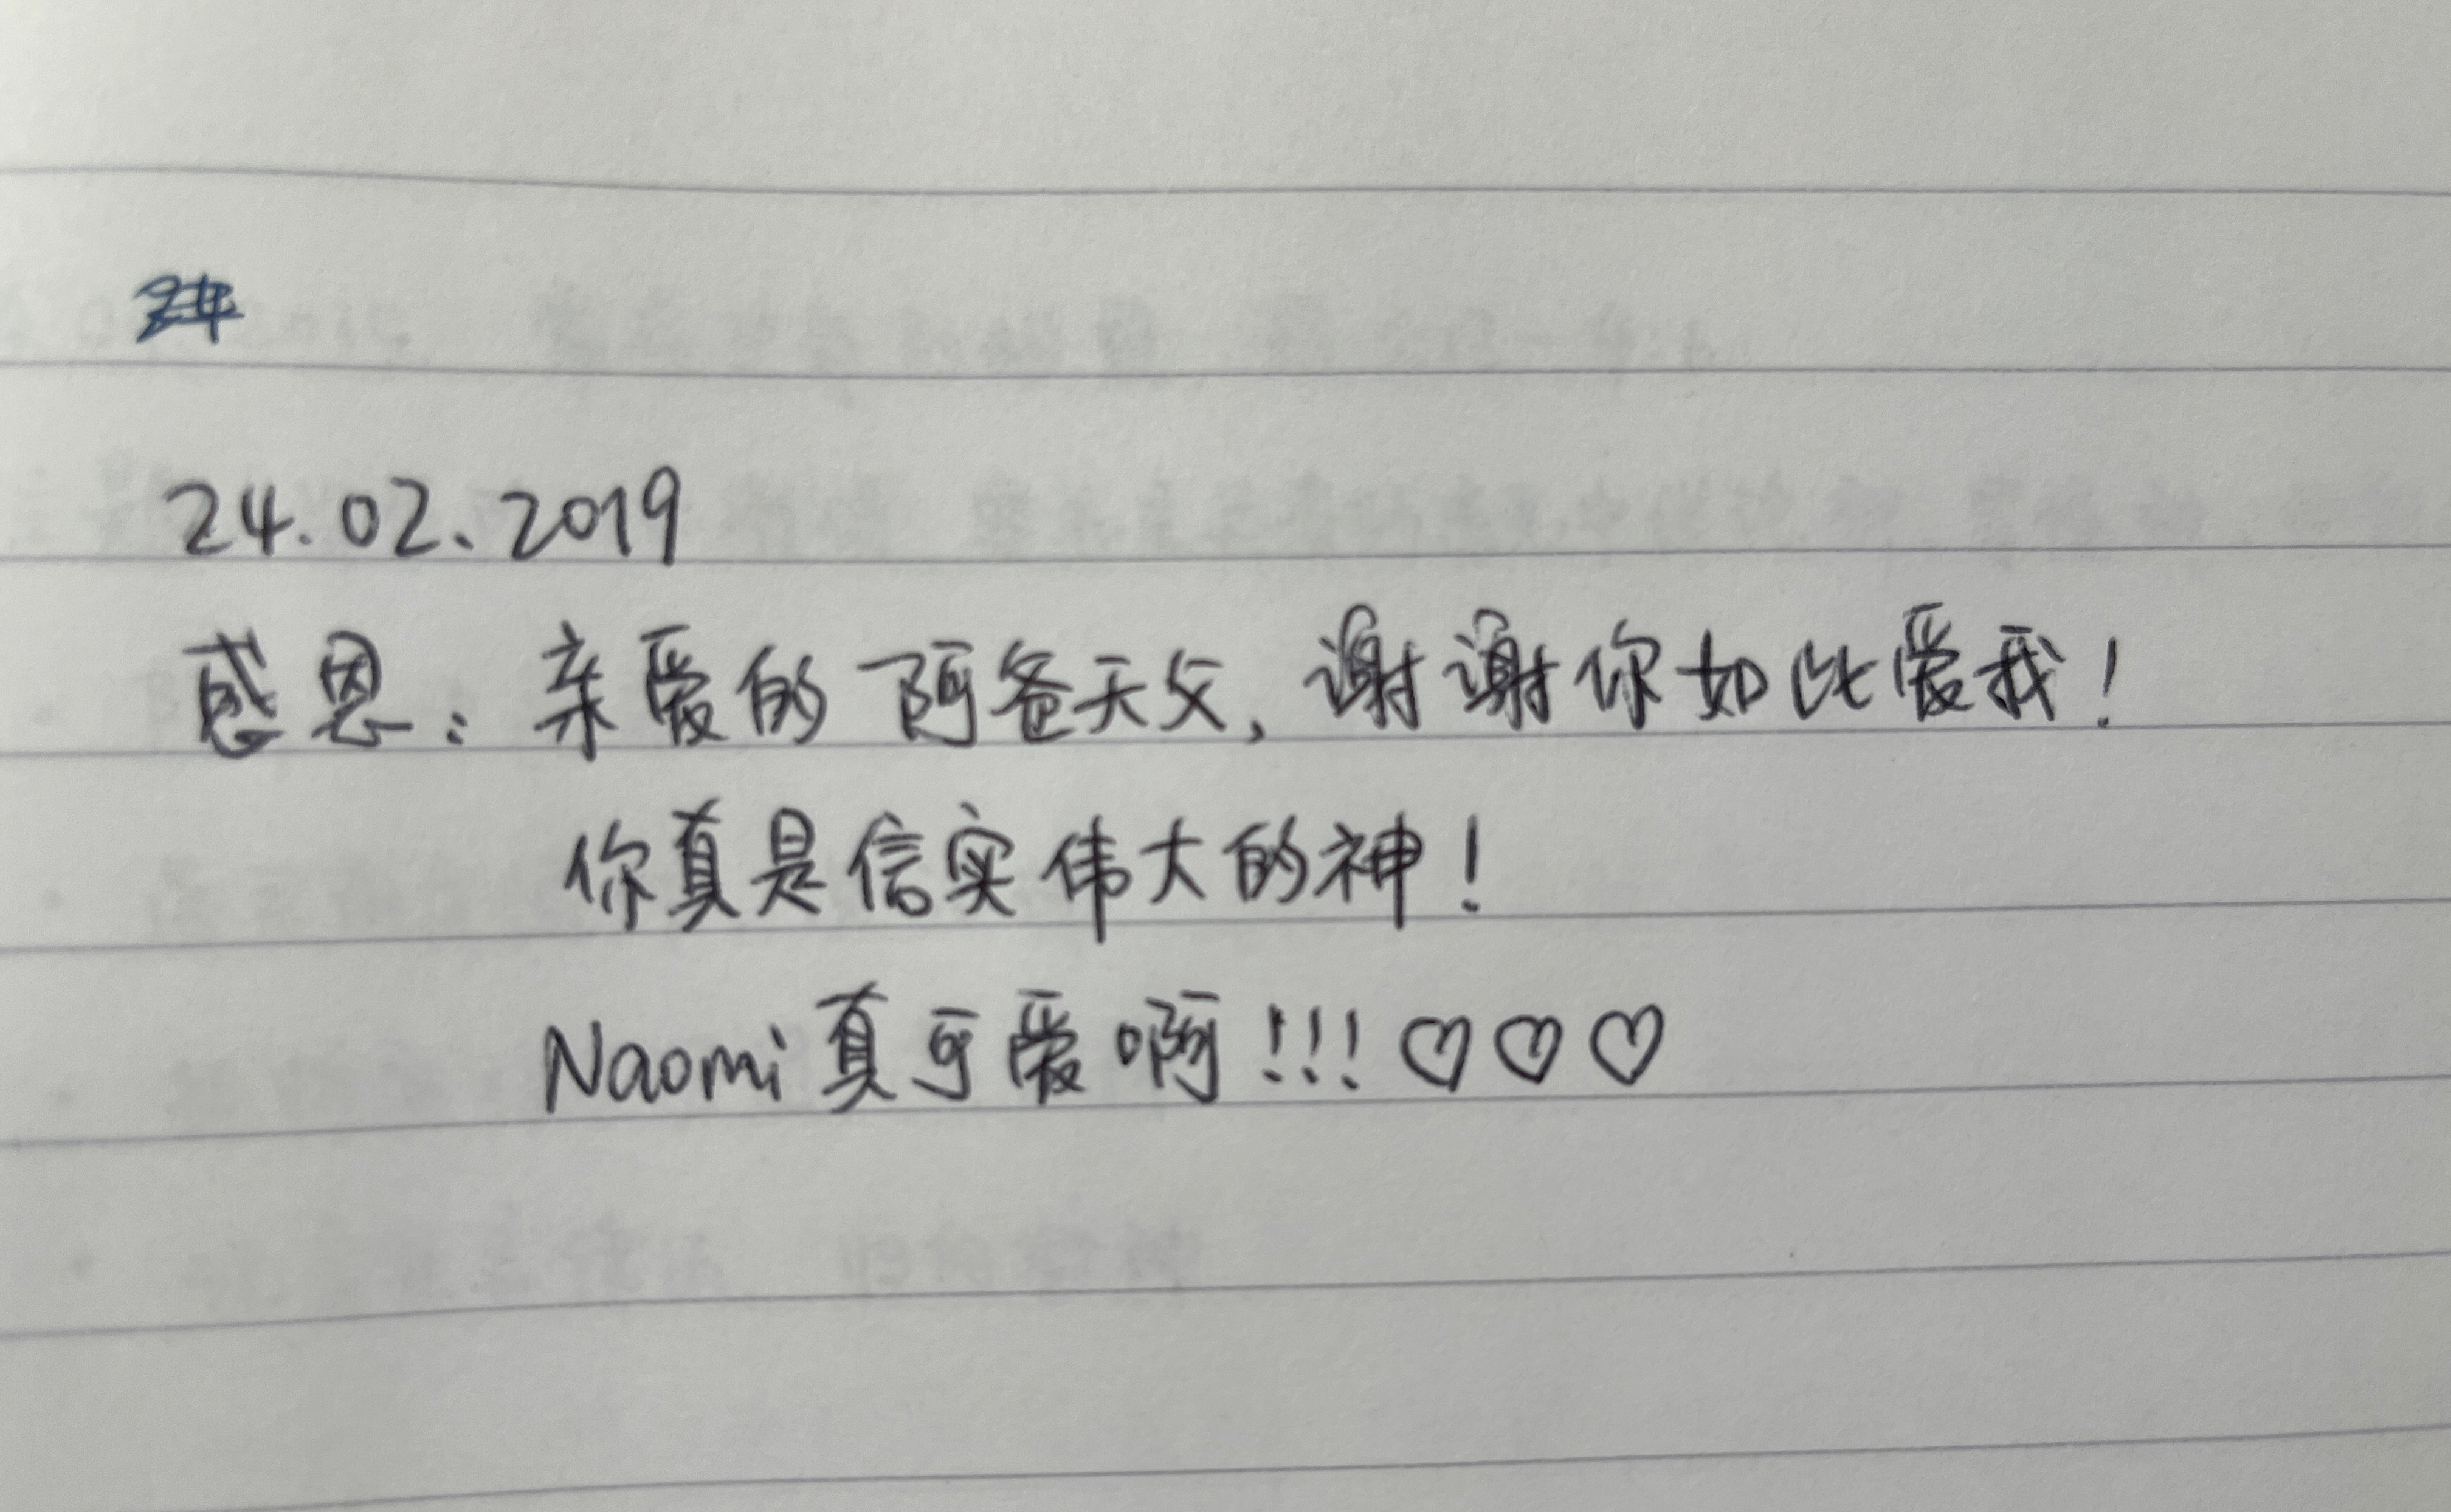 24.02.2019
感恩：亲爱的阿爸天父，谢谢你如此爱我！
你真是信实伟大的神！
Naomi真可爱啊！！！♡♡♡